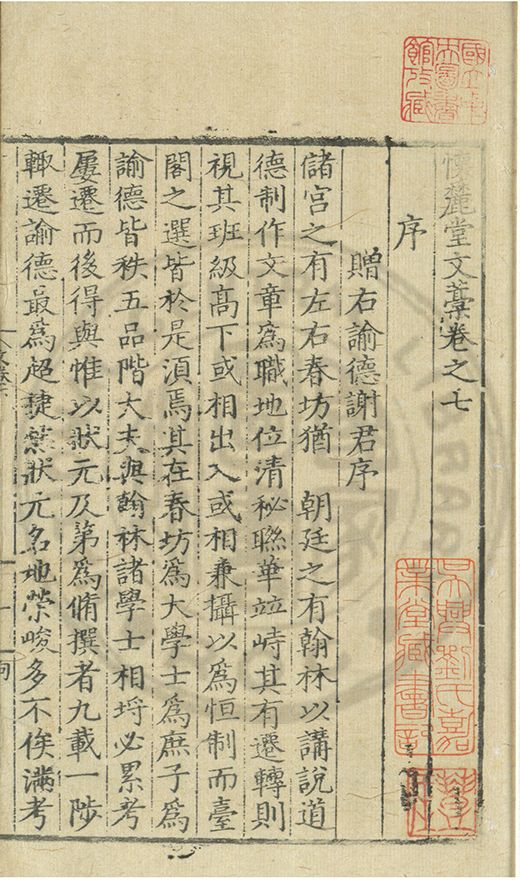 懷麓堂文藁卷之七
序
贈右諭德謝君序
儲宮之有左右春坊猶　朝廷之有翰林以講說道
德制作文章爲職地位清秘聯華竝峙其有遷轉則
視其班級髙下或相出入或相兼攝以爲恒制而臺
閣之選皆於是湏焉其在春坊爲大學士爲庶子爲
諭德皆秩五品階大夫與翰林諸學士相埒必累考
屢遷而後得與惟以狀元及第爲脩撰者九載一陟
輙遷諭德最爲超㨗然狀元名地榮峻多不俟滿考
國立中
央圖書
館收藏
吳興劉氏嘉
業堂藏書記